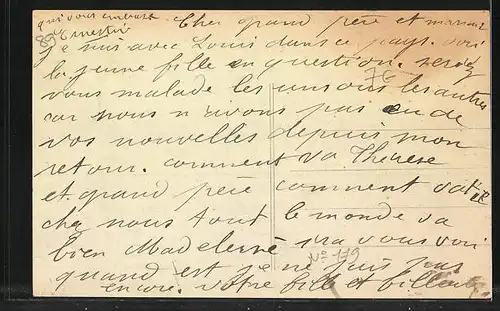 qui vous embrasse
Ernestine
Cher grand père et maman
je suis avec Louis dans ce pays. voici
la jeune fille en question. serez
76
vous malade les uns ou les autres
car nous n avons pas eu de
vos nouvelles depuis mon
retour. comment va Thérèse
et grand père comment va t il
chez nous tout le monde va
bien Madeleine ira vous voir
No 179
quand est je ne sais pas
encore. votre fille et filleule